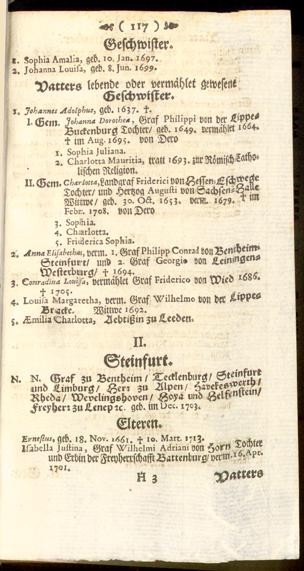 ( 117 )
Geschwister.
1. Sophia Amalia, geb. 10. Jan. 1697.
2. Johanna Louisa, geb. 8. Jun. 1699.
Vatters lebende oder vermählet gewesene
Geschwister.
1. Johannes Adolphus, geb. 1637. †.
I. Gem. Johanna Dorothea, Graf Philippi von der Lippe-
Buckenburg Tochter/ geb. 1649. vermählet 1664.
† im Aug. 1695. von Dero
1. Sophia Juliana.
2. Charlotta Mauritia, tratt 1693. zur Römisch-Catho-
lischen Religion.
II. Gem. Charlotta, Landgraf Friderici von Hessen-Eschwege
Tochter/ und Hertzog Augusti von Sachsen-Halle
Wittwe/ geb. 30. Oct. 1653. verm. 1679. † im
Febr. 1708. von Dero
3. Sophia.
4. Charlotta.
5. Friderica Sophia.
2. Anna Elisabetha, verm. 1. Graf Philipp Conrad von Bentheim-
Steinfurt/ und 2. Graf Georgio von Leiningen-
Westerburg/ † 1694.
3. Conradina Louisa, vermählet Graf Friderico von Wied 1686.
† 1705.
4. Louisa Margaretha, verm. Graf Wilhelmo von der Lippe-
Bracke. Wittwe 1692.
5. Æmilia Charlotta, Aebtißin zu Leeden.
II.
Steinfurt.
N. N. Graf zu Bentheim/ Tecklenburg/ Steinfurt
und Limburg/ Herr zu Alpen/ Havekeswerth/
Rheda/ Wevelingshoven/ Hoya und Helfenstein/
Freyherr zu Lenep ꝛc. geb. im Dec. 1703.
Elteren.
Ernestus, geb. 18. Nov. 1661. † 10. Mart. 1713.
Isabella Justina, Graf Wilhelmi Adriani von Horn Tochter
und Erbin der Freyherrschafft Battenburg/ verm. 16. Apr.
1701.
H 3 Vatters